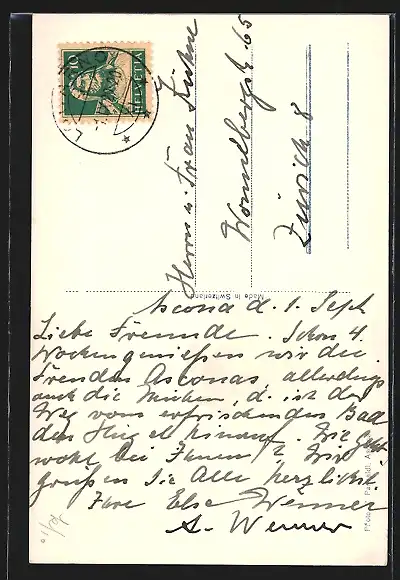 10
HELVETIA
Herrn u. Frau Kuhne
Wonnebergstr. 65
Zürich 8
Made in Switzerland
Ascona d. 1. Sept
Liebe Freunde. Schon 4
Wochen genießen wir die
Freuden Asconas, allerdings
auch die Mücken, d. ist der
Weg vom erfrischenden Bad
den Hügel hinauf. Wie geht
wohl bei Ihnen? Wir
grüßen Sie Alle herzlichst
Ihre Else Werner
A. Werner
Photo